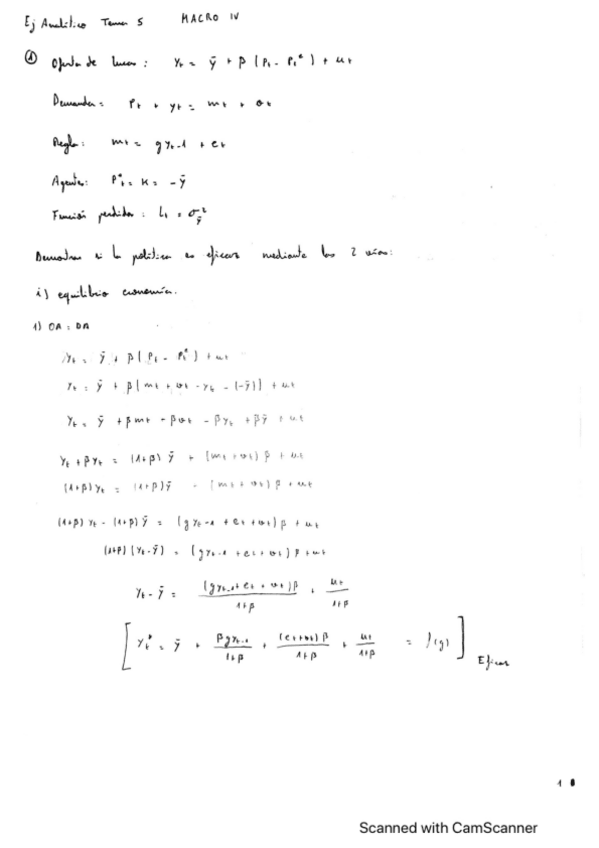 Ej Analítico Tema 5 MACRO IV
① Oferta de Lucas: yt = ȳ + β (Pt - Pt*) + ut
Demanda: Pt + yt = mt + vt
Regla: mt = g yt-1 + et
Agentes: Pt* = K = -ȳ
Función pérdida: Lt = σ²ȳ
Demostrar si la política es eficaz mediante las 2 vías:
i) equilibrio economía.
1) OA = DA
yt = ȳ + β (Pt - Pt*) + ut
yt = ȳ + β [mt + vt - yt - (-ȳ)] + ut
yt = ȳ + βmt + βvt - βyt + βȳ + ut
yt + βyt = (1+β) ȳ + (mt + vt) β + ut
(1+β) yt = (1+β) ȳ + (mt + vt) β + ut
(1+β) yt - (1+β) ȳ = (g yt-1 + et + vt) β + ut
(1+β) (yt - ȳ) = (g yt-1 + et + vt) β + ut
yt - ȳ = (g yt-1 + et + vt) β / 1+β + ut / 1+β
[ yt* = ȳ + βg yt-1 / 1+β + (et + vt) β / 1+β + ut / 1+β = f(g) ] Eficaz
1
Scanned with CamScanner